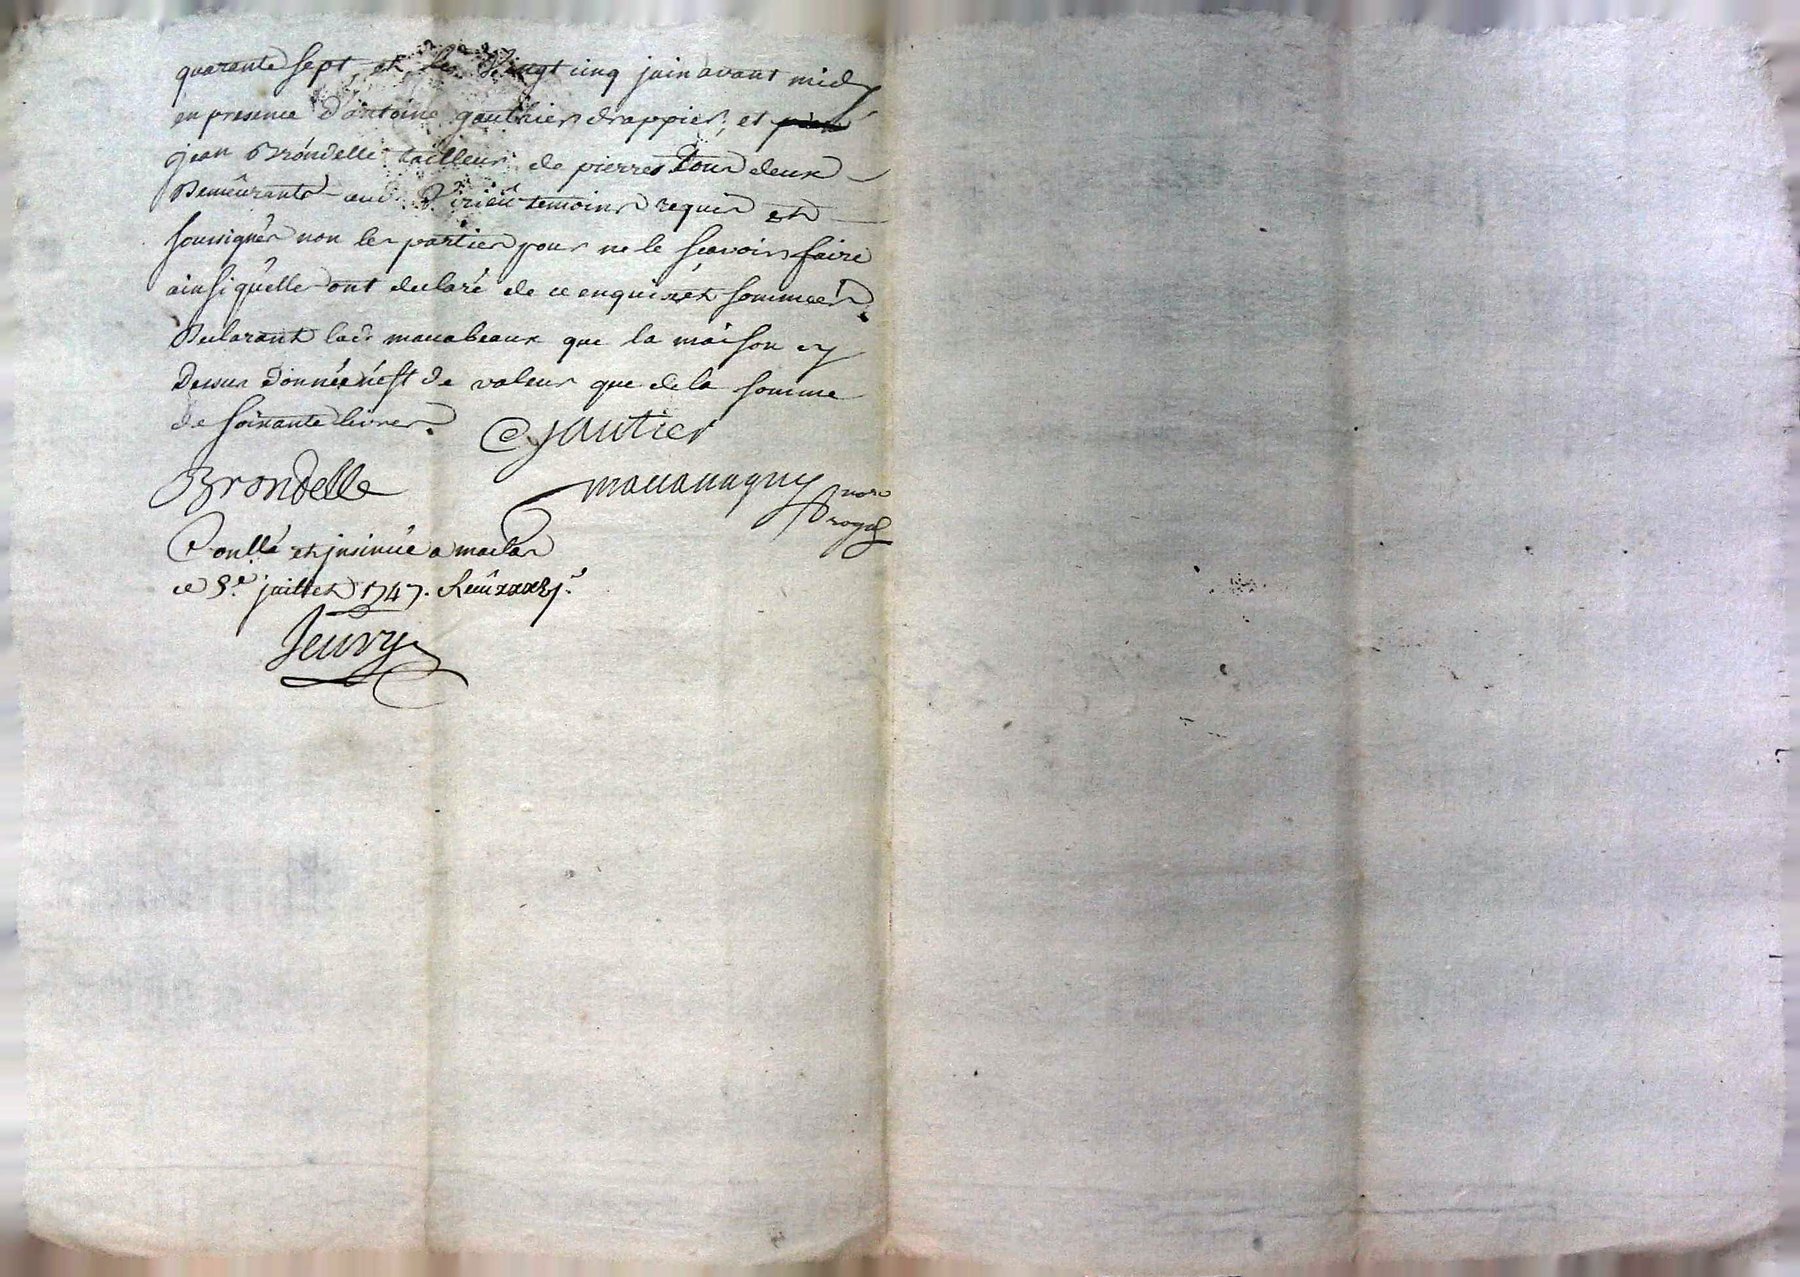 quarante sept et le vingt cinq juin avant midy
en presence d'antoine gauthier drappier, et
jean Brondelle tailleur de pierres tous deux
Demeurants aud. Virieû temoins requis et
soussignés non les parties pour ne le scavoir faire
ainsi quelles ont declaré de ce enquises et sommées
Declarant lad. macabeaux que la maison cy
Dessus donnée n'est de valeur que de la somme
de soixante livres.
gautier
Brondelle
nore
royal
Conllé et insinué a
ce 8e. juillet 1747.